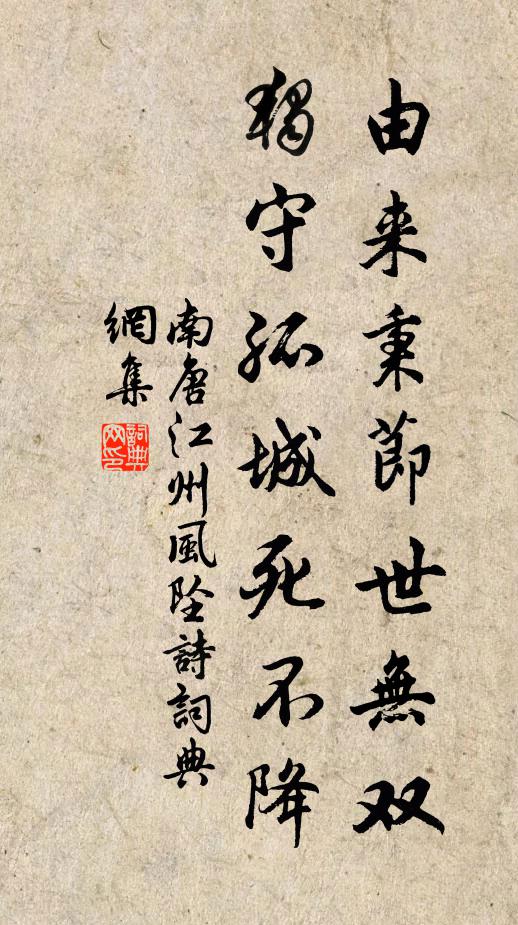 由来秉節世無双
獨守孤城死不降
南唐江州風墜詩詞典
網集
詞典網印